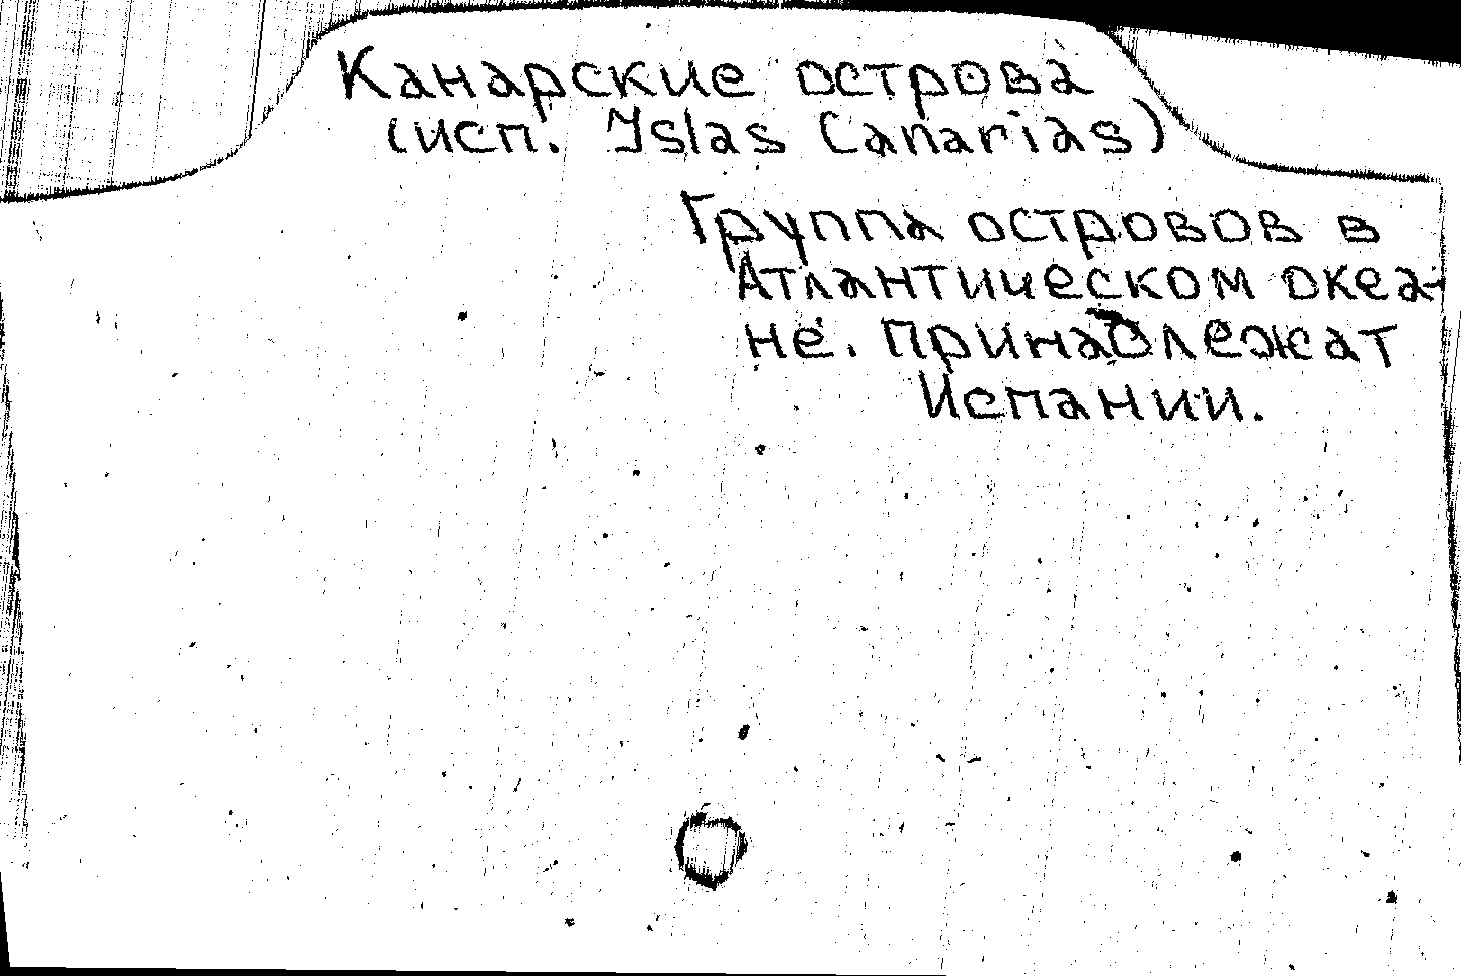 Канарские острова
(исп. Yslas Canarias)
Группа островов в
Атлантическом океа-
не. Принадлежат
Испании.